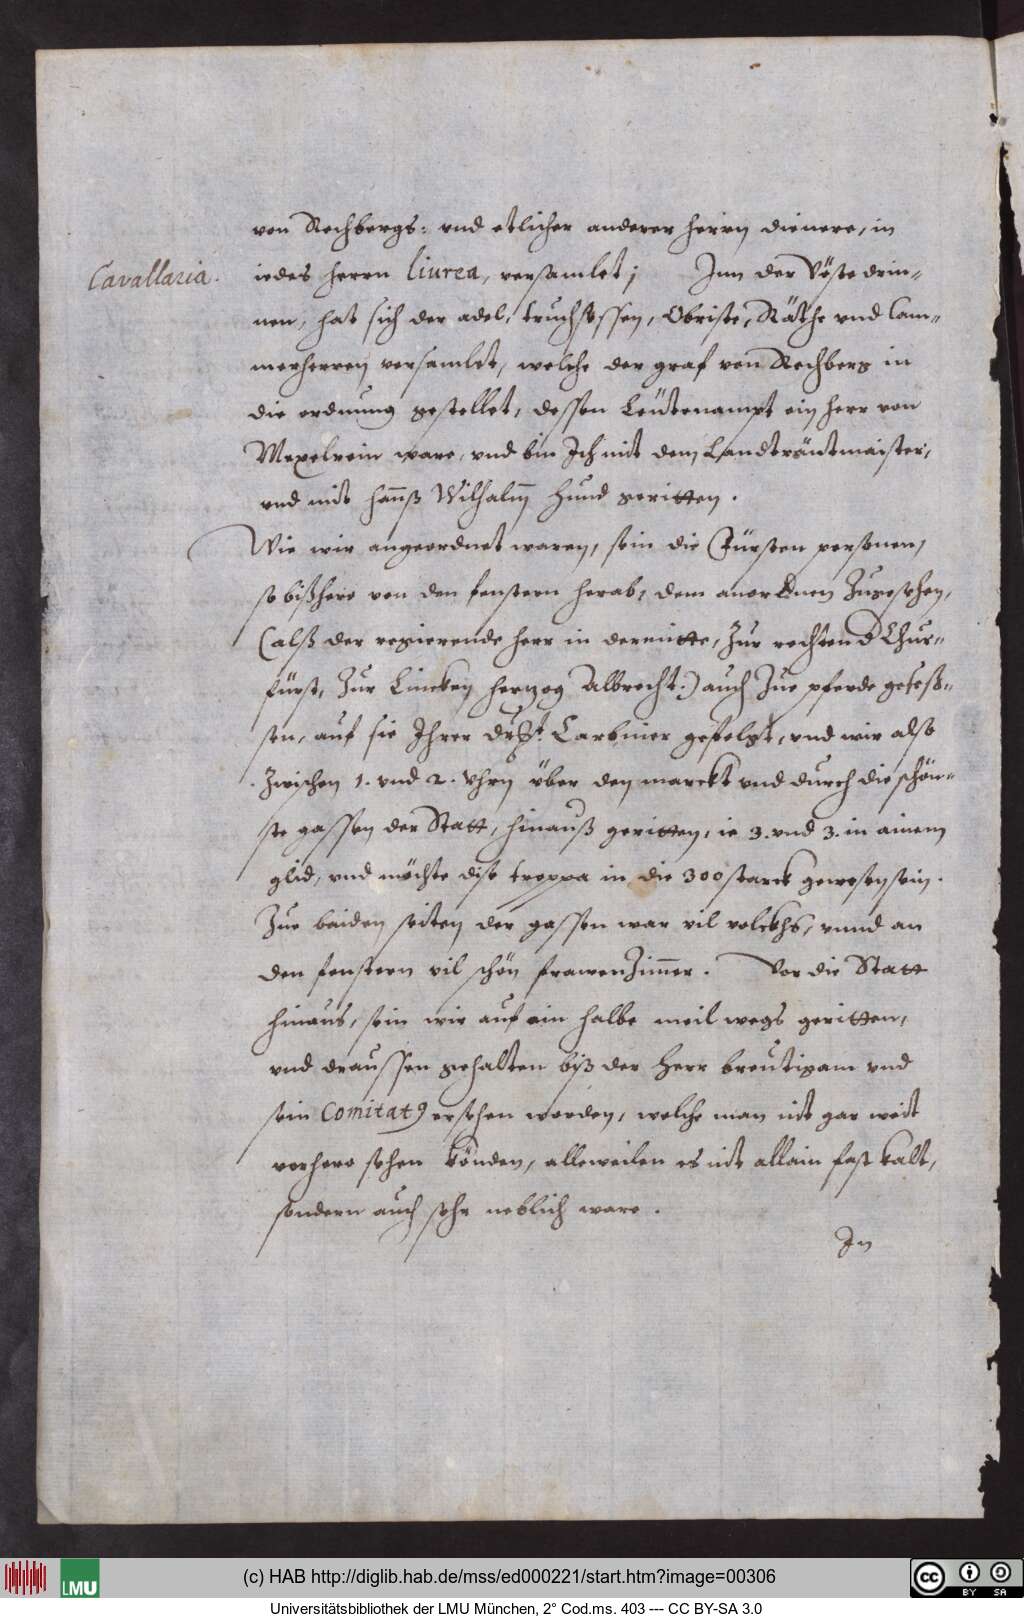 von Rechbergs: und etlicher anderer herrn dienere, in
Cavallaria.
iedes herrn liurea, versamlet; Inn der Vöste drin=
nen, hat sich der adel, truchsessen, Obriste, Räthe und Cam=
merherren versamlet, welche der graf von Rechberg in
die ordnung gestellet, dessen Leütenampt ein herr von
Mexelrein ware, und bin Ich mit dem Landträntmaister,
und mit hannß Wilhalm Hund geritten.
Wie wir angeordnet waren, sein die Fürsten personen,
so bißhero von den fenstern herab, dem anordnen Zugesehen,
(alß der regierende herr in der mitte, Zur rechten d Chur=
fürst, Zur Lincken hertzog Albrecht.) auch Zue pferde geseß=
sen, auf sie Ihrer Drlt. Carbiner gefolgt, und wir also
Zwischen 1. und 2. Uhrn über den marckt und durch die schön=
ste gassen der Statt, hinauß geritten, ie 3. und 3. in ainem
glid, und möchte dise troppa in die 300 starck gewesen sein.
Zue beiden seiten der gassen war vil volckhs, unnd an
den fenstern vil schön frawenZimmer. Vor die Statt
hinaus, sein wir auf ein halbe meil wegs geritten,
und draussen gehalten biß der Herr breutigam und
sein Comitat9 ersehen worden, welche man nit gar weit
vorhero sehen könden, alleweilen es nit allain fast kalt,
sondern auch sehr neblich ware.
In
(c) HAB http://diglib.hab.de/mss/ed000221/start.htm?image=00306
LMU
cc BY SA
Universitätsbibliothek der LMU München, 2° Cod.ms. 403 --- CC BY-SA 3.0